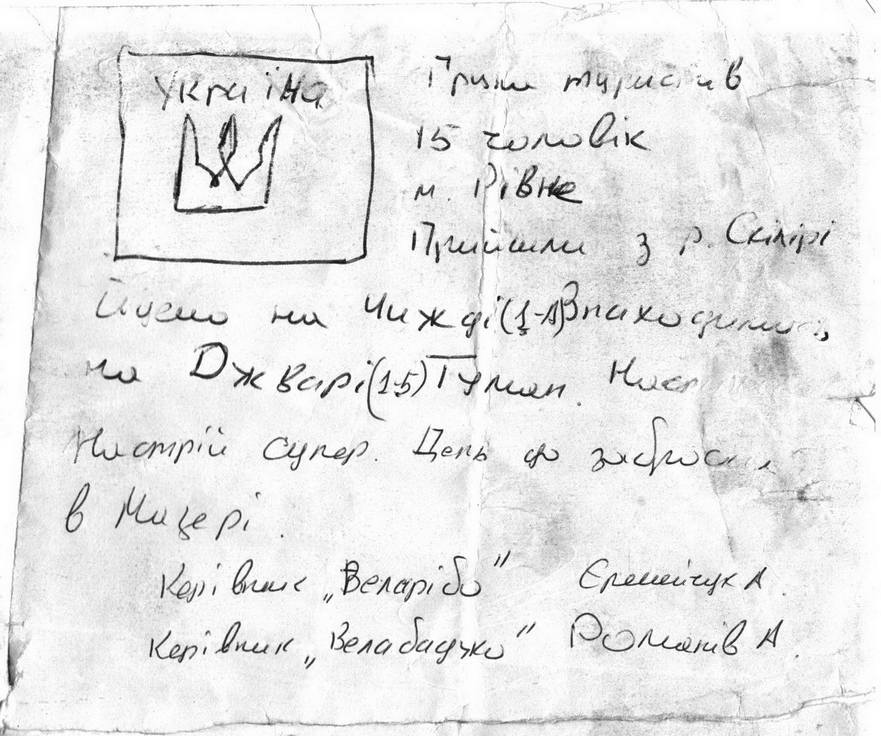 Україна
Група туристів
15 чоловік
м. Рівне
Прийшли з р. Скілірі
Йдемо на Чижді (1-А) Знаходимось
на Джварі (1Б) Туман.
Настрій супер. День до заброски
в Мазері.
Керівник „Веларібо" Єремейчук А.
Керівник „Велабаджо" Романів А.